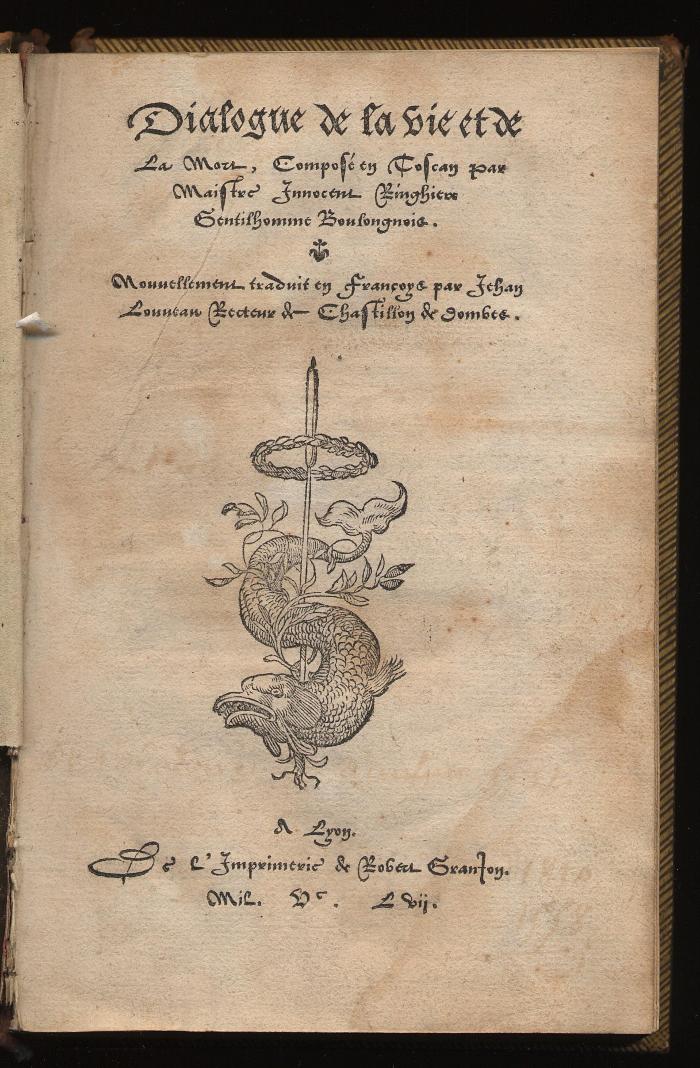 Dialogue de la vie et de
La Mort, Composé en Toscan par
Maistre Innocent Ringhiere
Gentilhomme Boulongnois.
Nouvellement traduit en Françoys par Jehan
Louveau Recteur de Chastillon de Dombes.
A Lyon.
De L'Imprimerie de Robert Granjon.
Mil. Vc. Lvij.